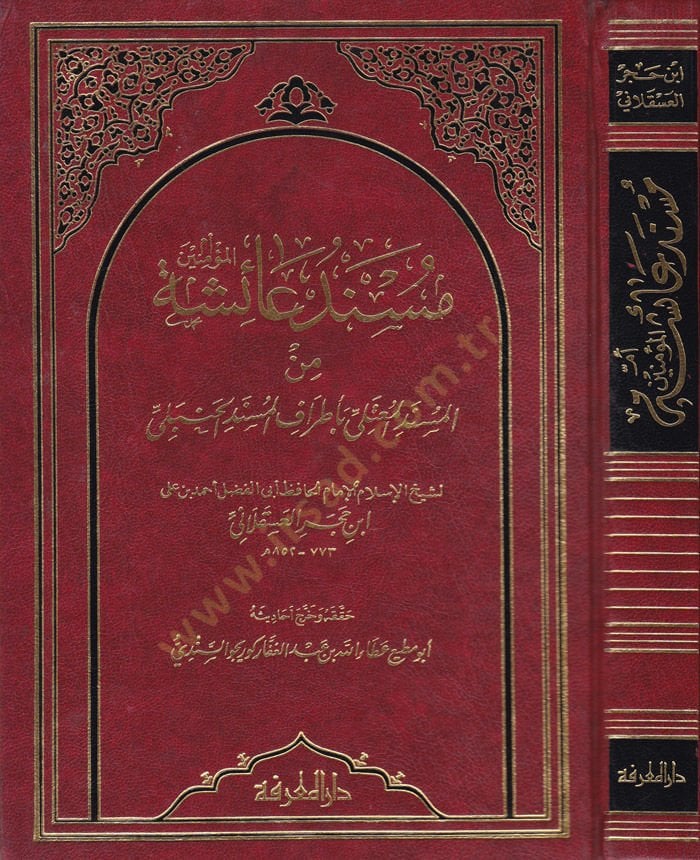 مُسْنَدُ عَائِشَة المؤمنين
مِنْ
المسند المعتلي بأطراف المسند الحنبلي
لشيخ الإسلام الإمام الحافظ أبي الفضل أحمد بن علي
ابن حجر العسقلاني
٧٧٣ - ٨٥٢هـ
حققه وخرج أحاديثه
أبو مطيع عطاء الله بن عبد الغفار كوريجو السندي
دار المعرفة
ابن حجر
العسقلاني
مسند عائشة أم المؤمنين
دار المعرفة
www.irsad.com.tr